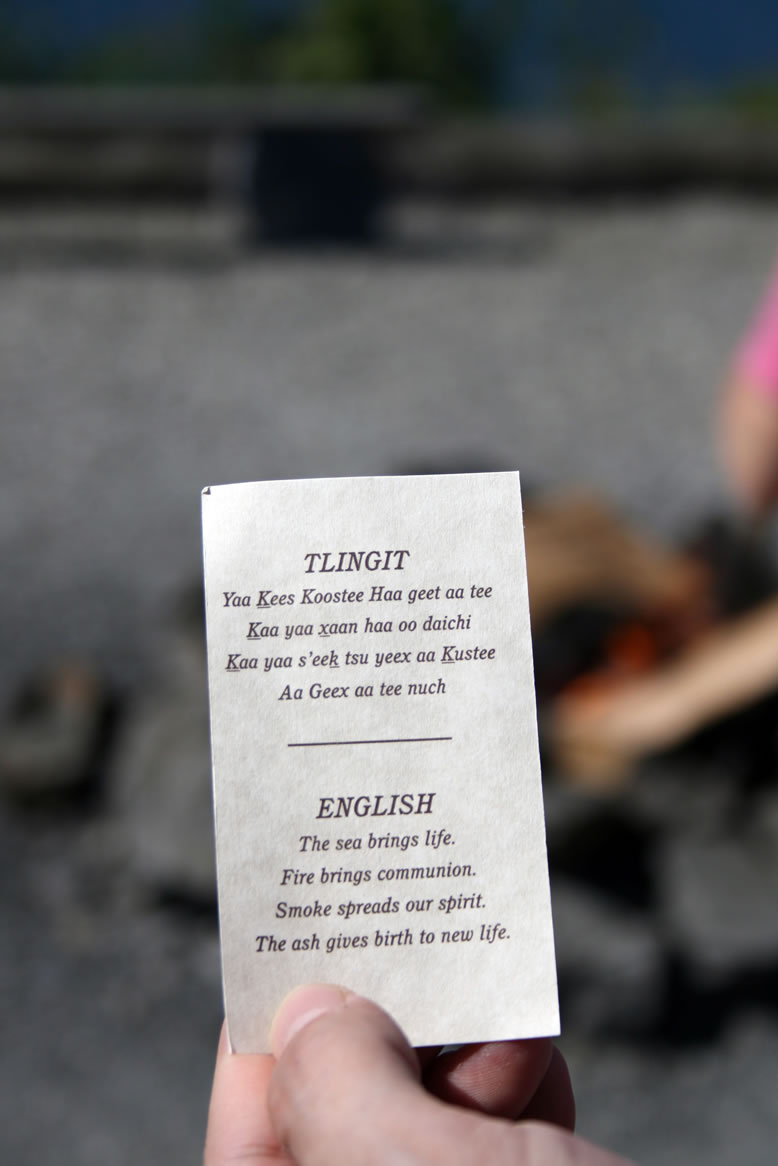 TLINGIT
Yaa Ḵees Koostee Haa geet aa tee
Ḵaa yaa x̱aan haa oo daichi
Ḵaa yaa s’eeḵ tsu yeex aa Ḵustee
Aa Geex aa tee nuch
ENGLISH
The sea brings life.
Fire brings communion.
Smoke spreads our spirit.
The ash gives birth to new life.